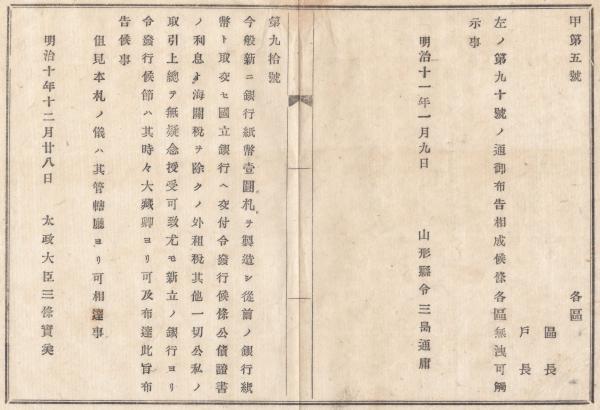 甲第五號
各區
區長
戶長
左ノ第九十號ノ通御布告相成候條各區無洩可觸
示事
明治十一年一月九日 山形縣令三島通庸
第九拾號
今般新ニ銀行紙幣壹圓札ヲ製造シ從前ノ銀行紙
幣ト取交セ國立銀行ヘ交付令發行候條公債證書
ノ利息ヲ海關稅ヲ除クノ外租稅其他一切公私ノ
取引上總テ無疑念授受可致尤モ新立ノ銀行ヨリ
令發行候節ハ其時々大藏卿ヨリ可及布達此旨布
告候事
但見本札ノ儀ハ其管轄廳ヨリ可相達事
明治十年十二月廿八日 太政大臣三條實美